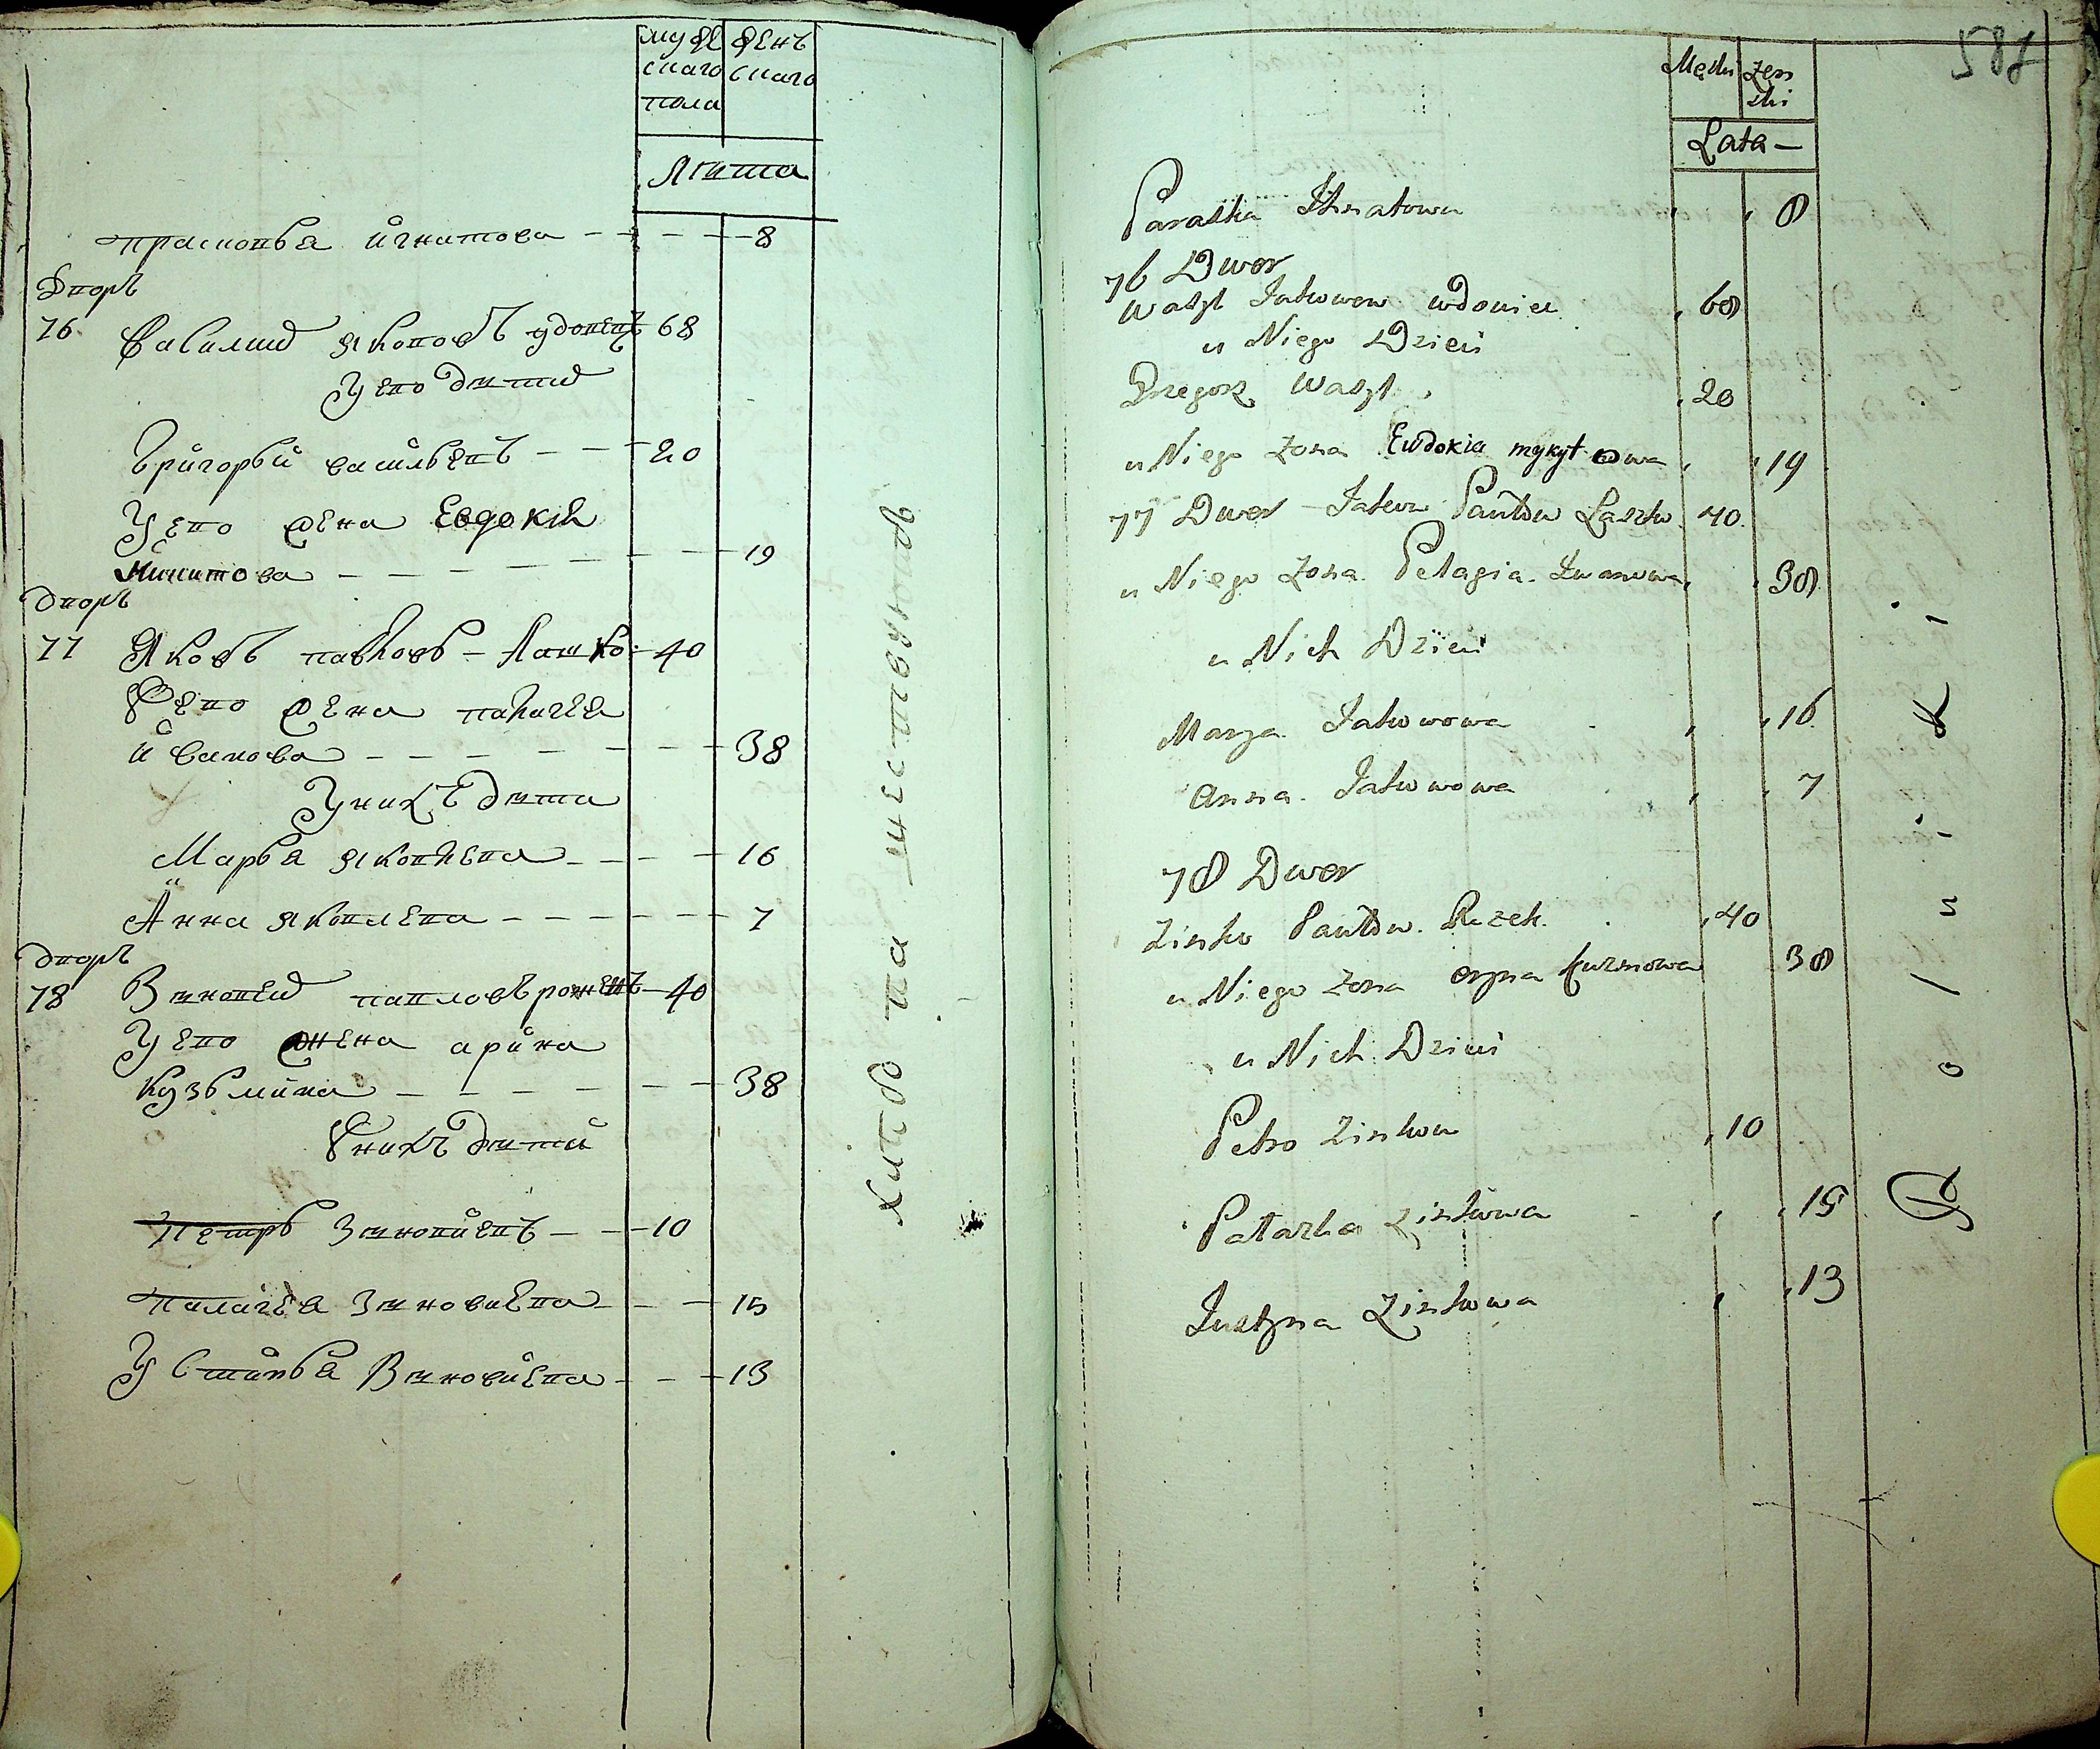 мужескаго пола женскаго
лѣта
прасковья игнатова 8
дворъ
76 василий яковов вдовецъ 68
у ево дети
григорьй васильевъ 20
У ево жена Евдокия
Микитова 19
дворъ
77 Яковъ павловъ - Лашко 40
У ево жена палагея
иванова 38
У нихъ дети
Марья яковлева 16
Анна яковлева 7
дворъ
78 Зиновей павловъ рожекъ 40
У ево жена арина
кузьмина 38
У нихъ дети
петръ Зиновиевъ 10
палагея Зиновиева 15
Устинья Зиновиева 13
587
Męski Żenski
Lata
Paraska Ihnatowa 8
76 Dwor
Wasyl Jakowow wdowiec 68
u Niego Dzieci
Grzegorz Wasyl 20
u Niego żona Ewdokia mykytowa 19
77 Dwor Jakow Pawłow Laszko 40
u Niego żona Pelagia Iwanowa 38
u Nich Dzieci
Marya Jakowowa 16
Anna Jakowowa 7
78 Dwor
Zinko Pawłow Rożek 40
u Niego żona oryna kuzmowa 38
u Nich Dzieci
Petro Zinkow 10
Palazka Zinkowa 15
Justyna Zinkowa 13